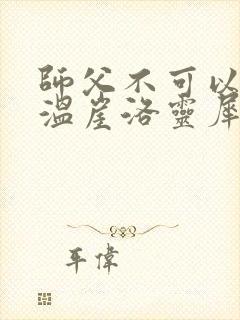 師父不可以
溫崖洛靈犀
平偉